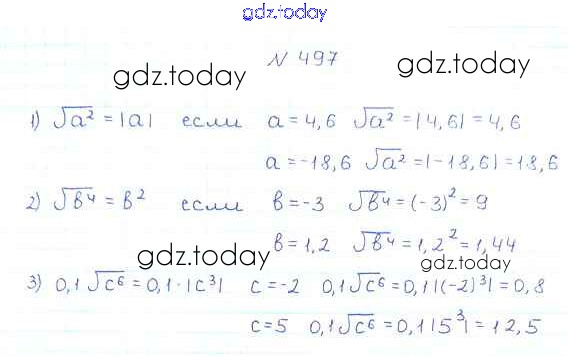 gdz.today
N 497
gdz.today gdz.today
1) √a² = |a| если a = 4,6 √a² = |4,6| = 4,6
a = -18,6 √a² = |-18,6| = 18,6
2) √в⁴ = в² если в = -3 √в⁴ = (-3)² = 9
в = 1,2 √в⁴ = 1,2² = 1,44
gdz.today gdz.today
3) 0,1√c⁶ = 0,1·|c³| c = -2 0,1√c⁶ = 0,1|(-2)³| = 0,8
c = 5 0,1√c⁶ = 0,1|5³| = 12,5